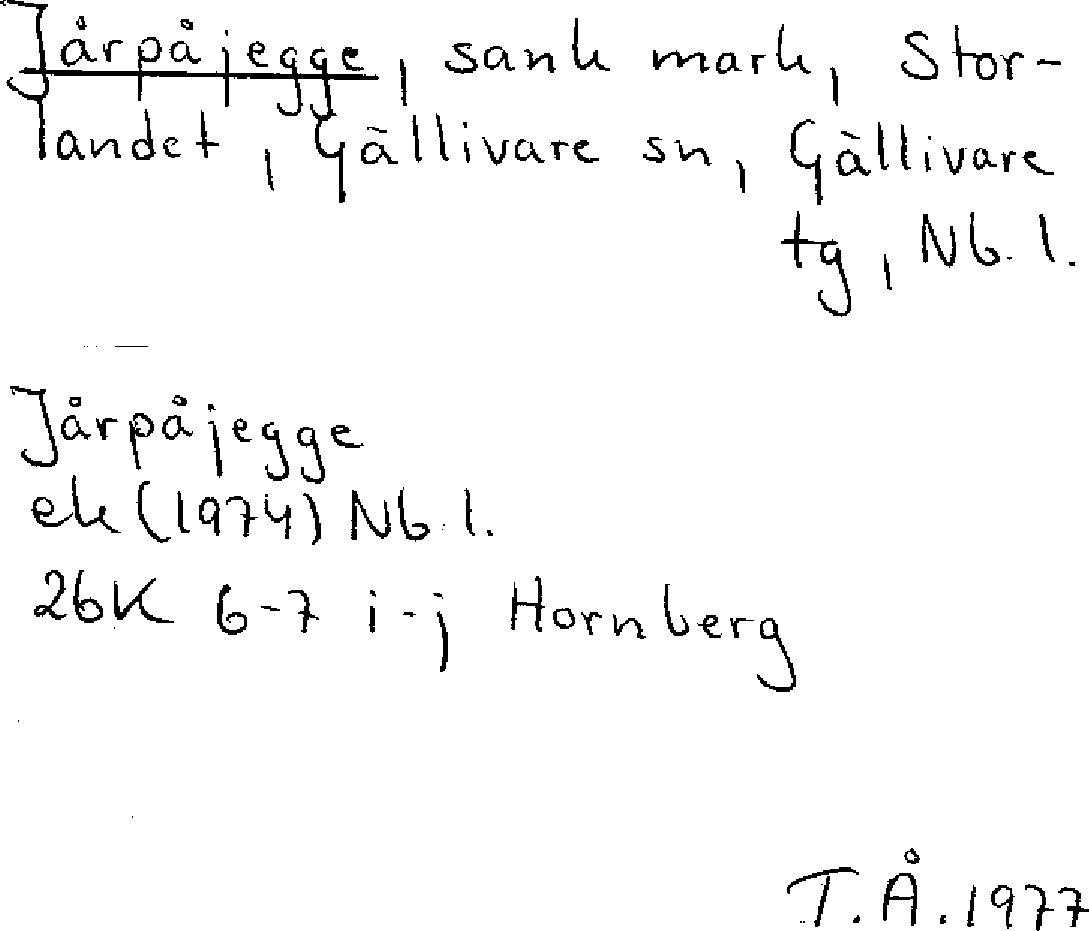 Jårpåjegge, sank mark, Stor-
landet, Gällivare sn, Gällivare
tg, Nb. l.
Jårpåjegge
ek (1974) Nb. l.
26K 6-7 i-j Hornberg
T.Å. 1977